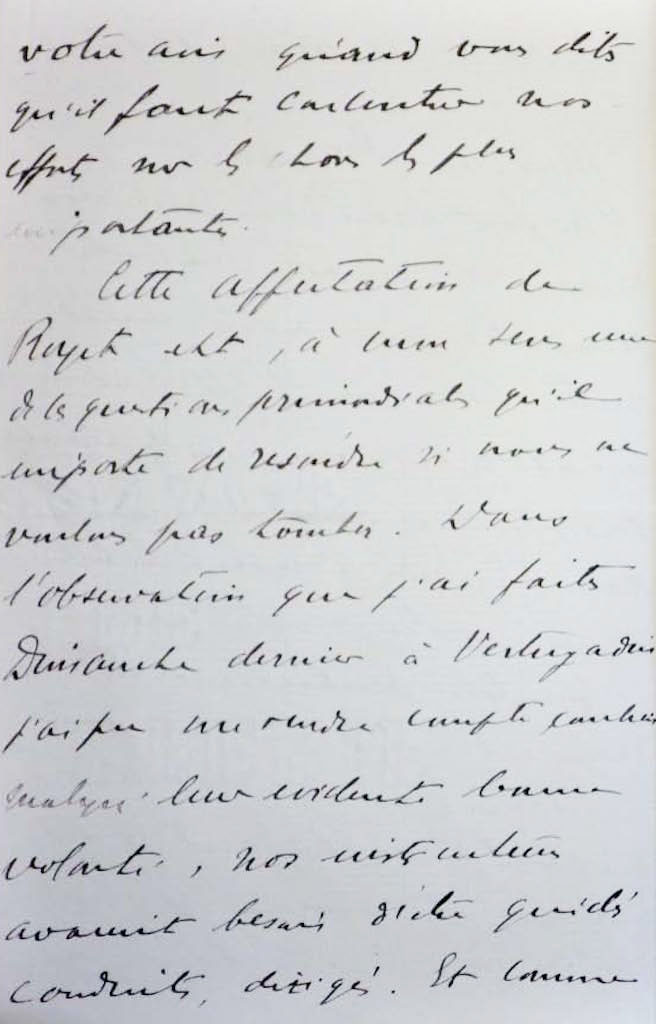 votre avis quand vous dites
qu'il faut concentrer nos
efforts sur les choses les plus
importantes.
Cette affectation de
est, à mon sens une
de les questions primordiales qu'il
importe de resoudre si nous ne
voulons pas tomber. Dans
l'observation que j'ai faite
Dimanche dernier à Vertugadin
j'ai pu me rendre compte combien
malgré leur evidente bonne
volonté, nos instructeurs
avaient besoin d'être guidés
conduits, dirigés. Et comme